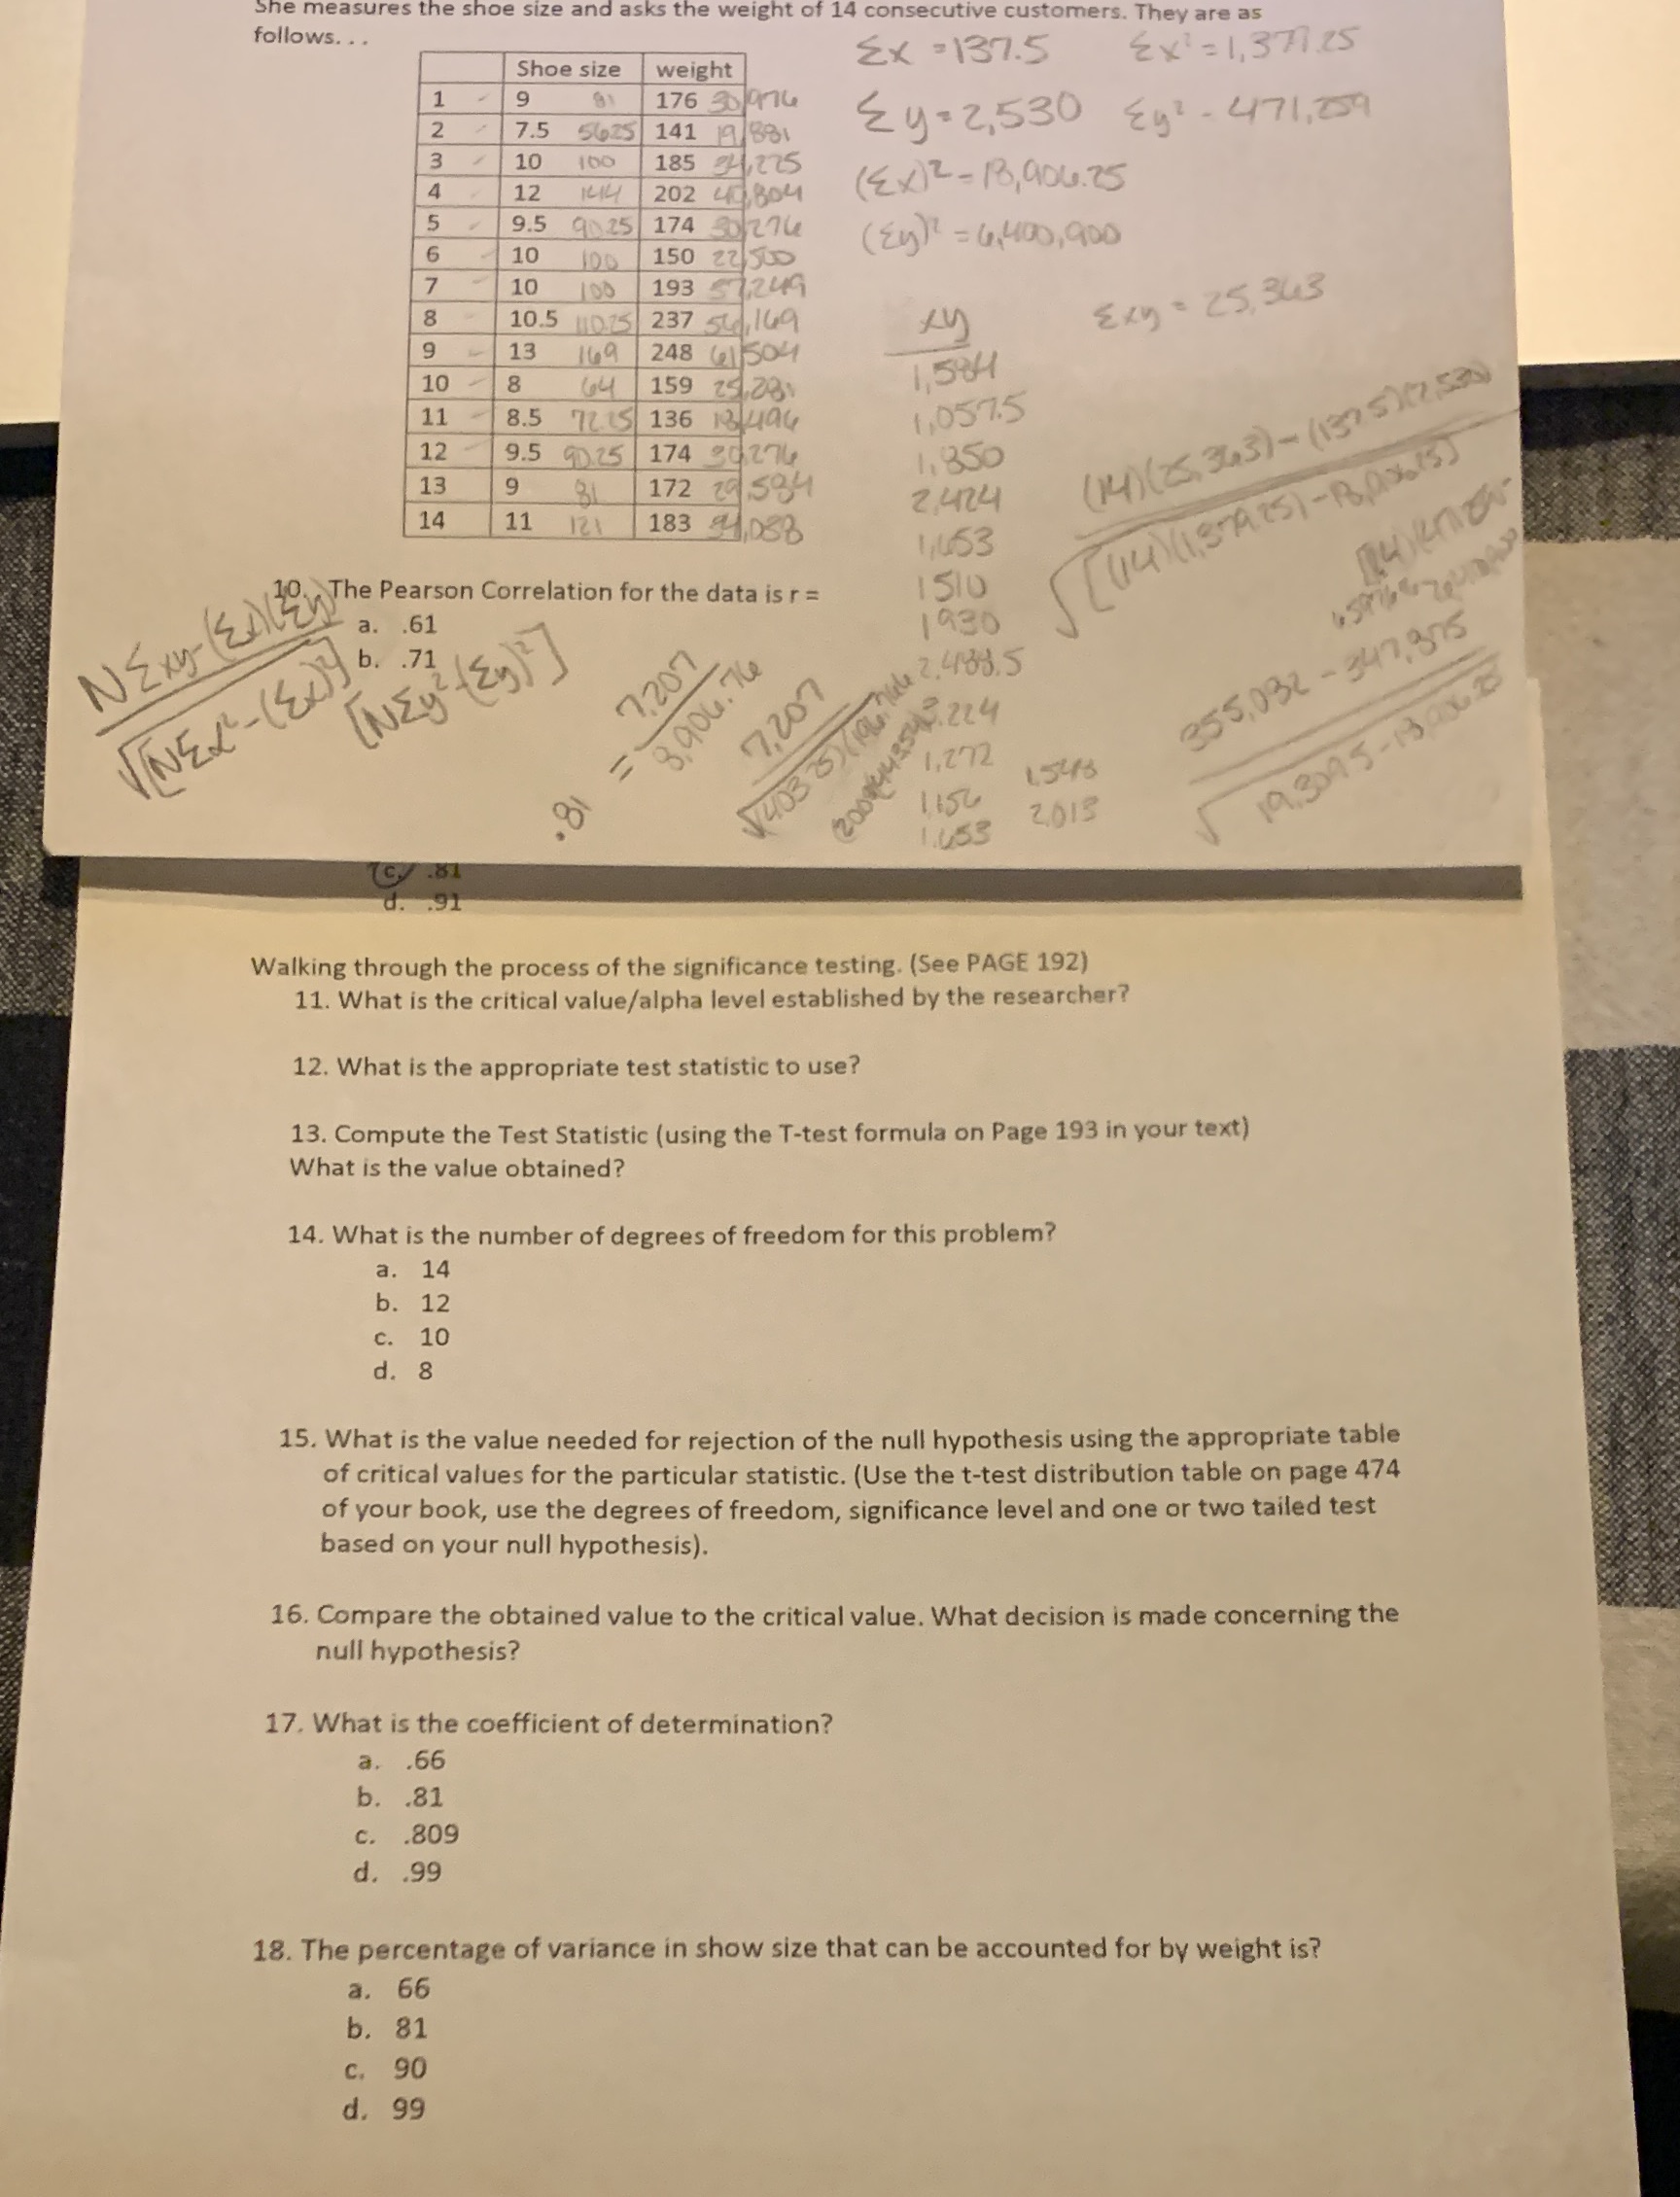 She measures the shoe size and asks the weight of 14 consecutive customers. They are as
follows. . .
Σx = 137.5 Σx² = 1,379.25
Σy = 2,530 Σy² = 471,259
(Σx)² = 18,906.25
(Σy)² = 6,400,900
Σxy = 25,363
Shoe size weight
1 9 81 176 30,976
2 7.5 56.25 141 19,881
3 10 100 185 34,225
4 12 144 202 40,804
5 9.5 90.25 174 30,276
6 10 100 150 22,500
7 10 100 193 37,249
8 10.5 110.25 237 56,169
9 13 169 248 61,504
10 8 64 159 25,281
11 8.5 72.25 136 18,496
12 9.5 90.25 174 30,276
13 9 81 172 29,584
14 11 121 183
xy
1,584
1,057.5
1,850
2,424
1,653
1510
1930
2,488.5
3,224
1,272
1,156
1,653
1,548
2,013
(14)(25,363)-(137.5)(2,530)
355,032 - 347,875
7,207
7,207
= 
.81
NΣxy-(Σx)(Σy)
√[NΣx²-(Σx)²] [NΣy²-(Σy)²]
10. The Pearson Correlation for the data is r =
a. .61
b. .71
c. .81
d. .91
Walking through the process of the significance testing. (See PAGE 192)
11. What is the critical value/alpha level established by the researcher?
12. What is the appropriate test statistic to use?
13. Compute the Test Statistic (using the T-test formula on Page 193 in your text)
What is the value obtained?
14. What is the number of degrees of freedom for this problem?
a. 14
b. 12
c. 10
d. 8
15. What is the value needed for rejection of the null hypothesis using the appropriate table
of critical values for the particular statistic. (Use the t-test distribution table on page 474
of your book, use the degrees of freedom, significance level and one or two tailed test
based on your null hypothesis).
16. Compare the obtained value to the critical value. What decision is made concerning the
null hypothesis?
17. What is the coefficient of determination?
a. .66
b. .81
c. .809
d. .99
18. The percentage of variance in show size that can be accounted for by weight is?
a. 66
b. 81
c. 90
d. 99